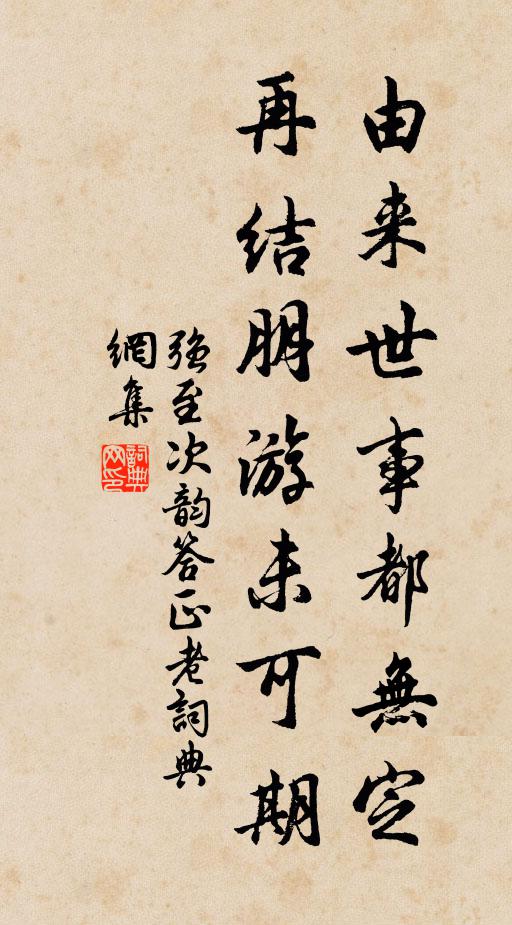 由来世事都無定
再结朋游未可期
強至次韵答正老詞典
網集
詞典網印